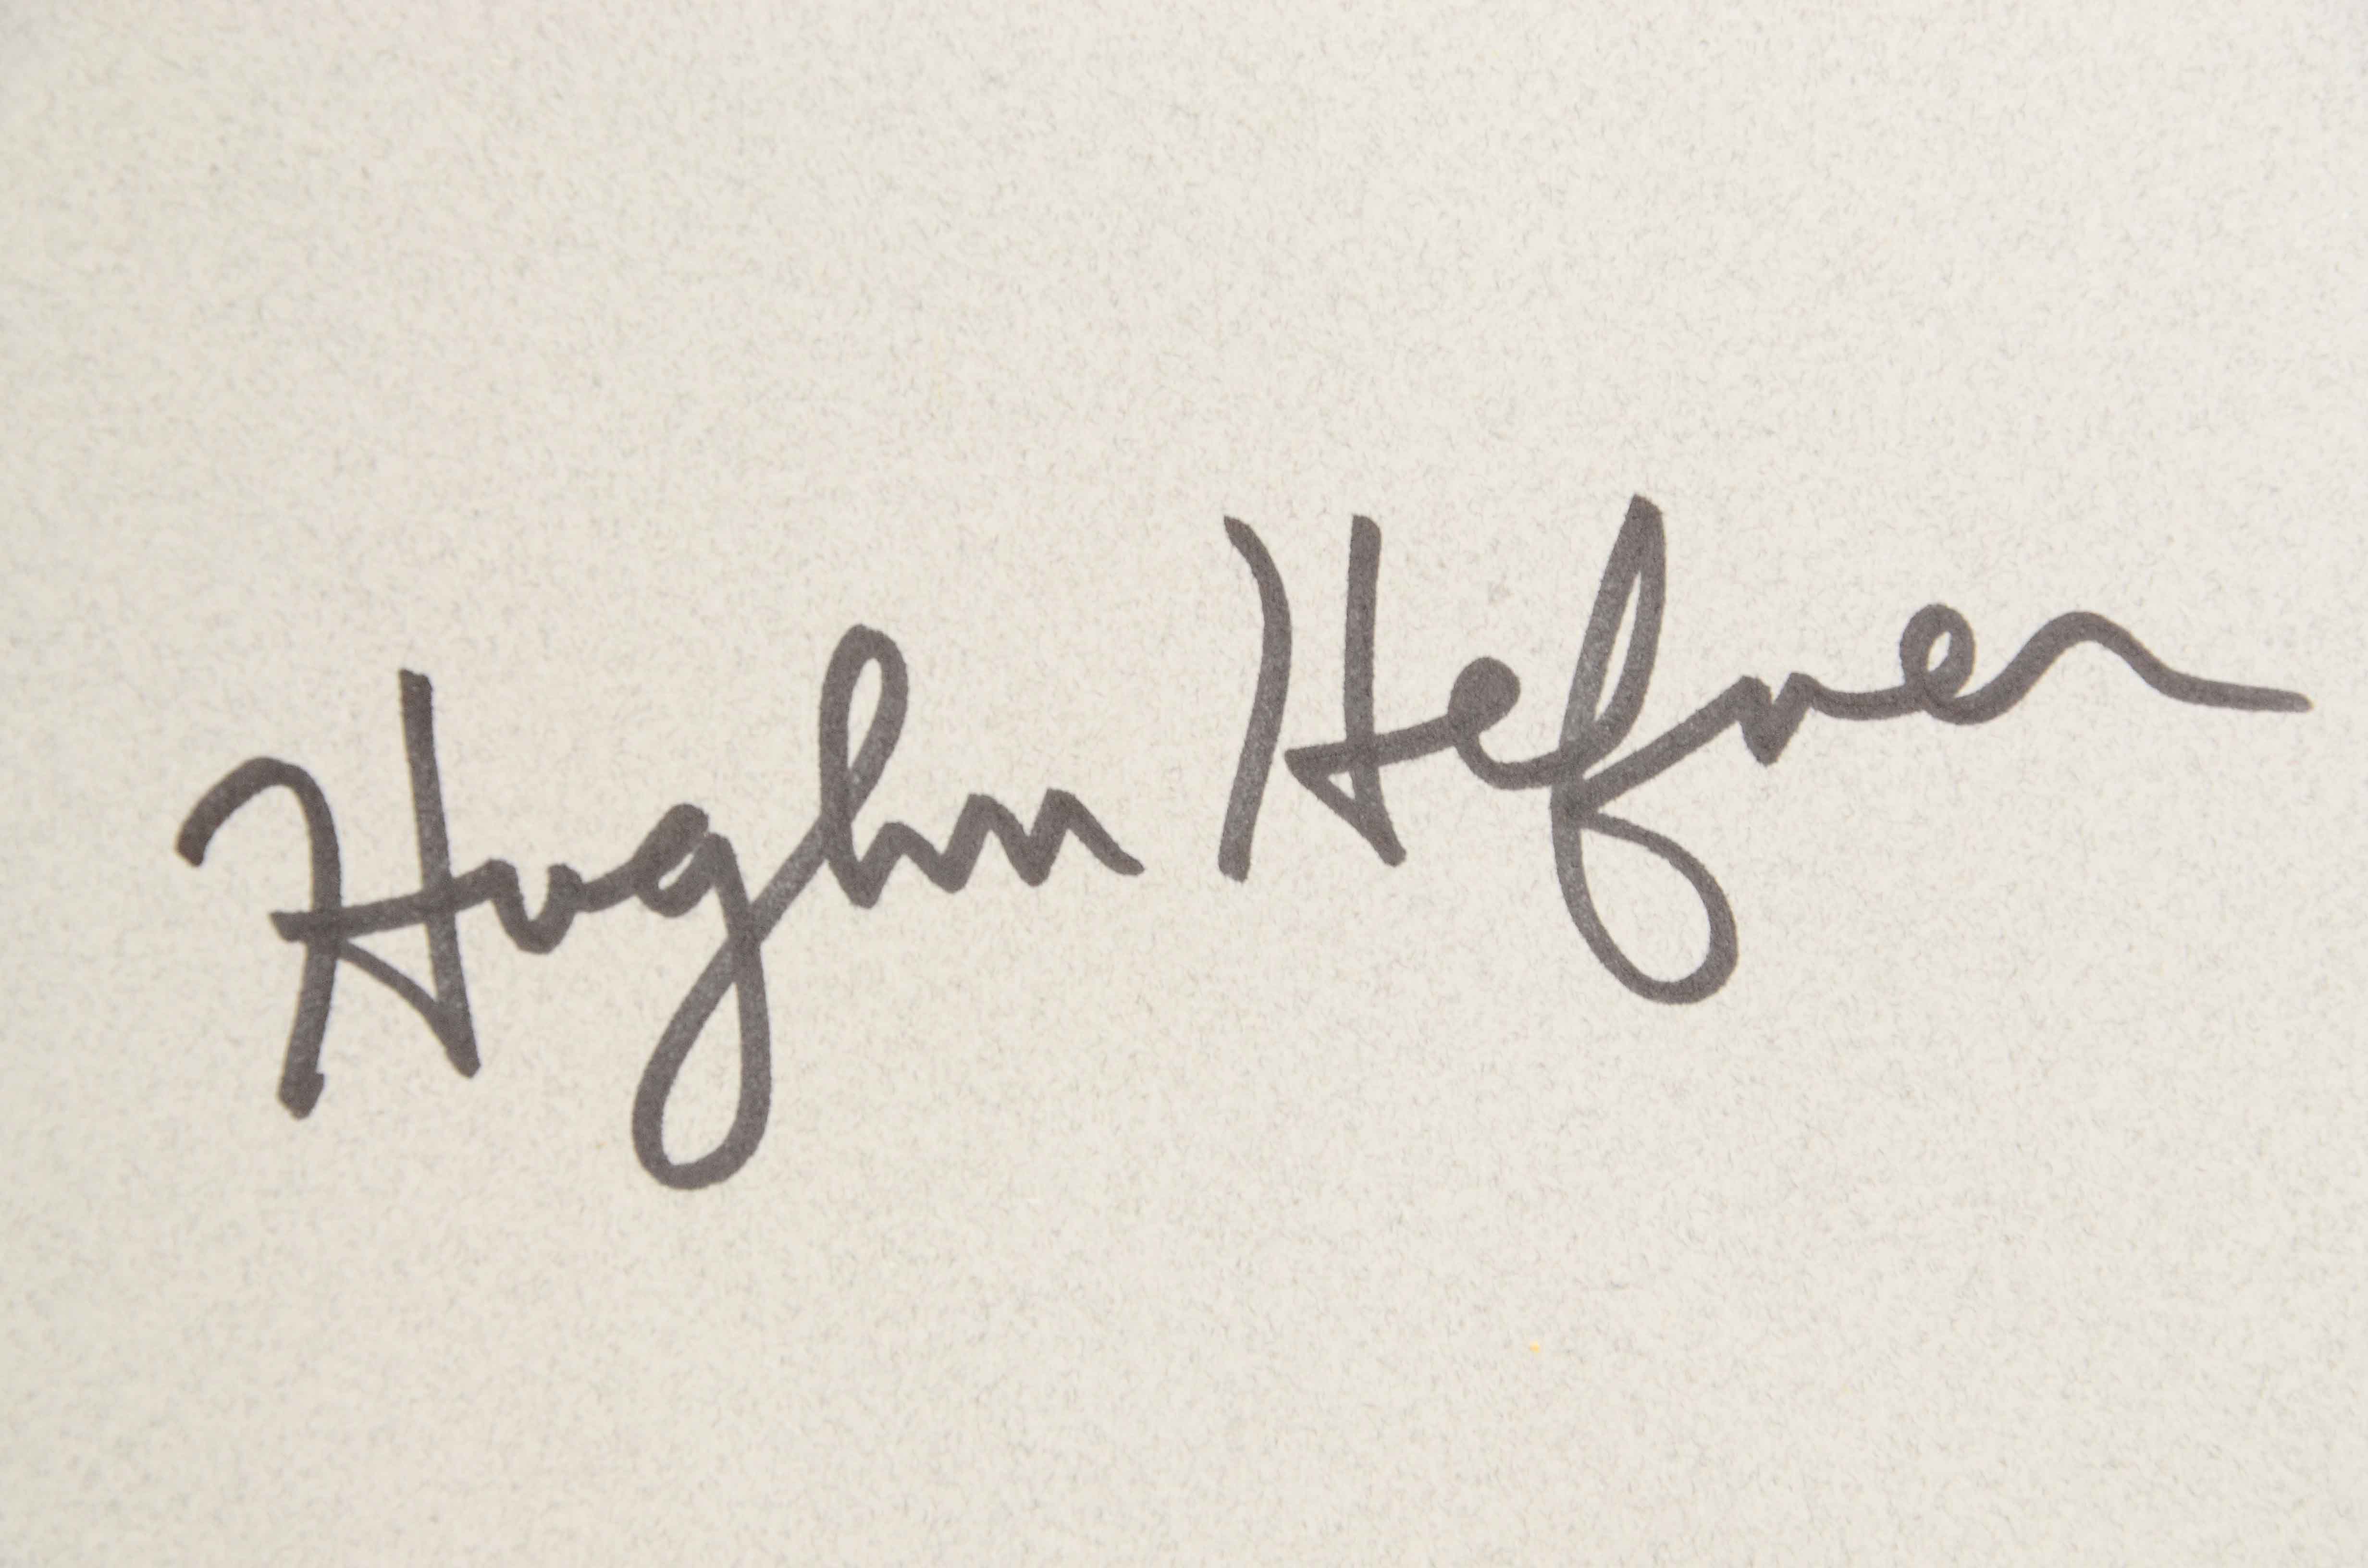 Hugh M Hefner